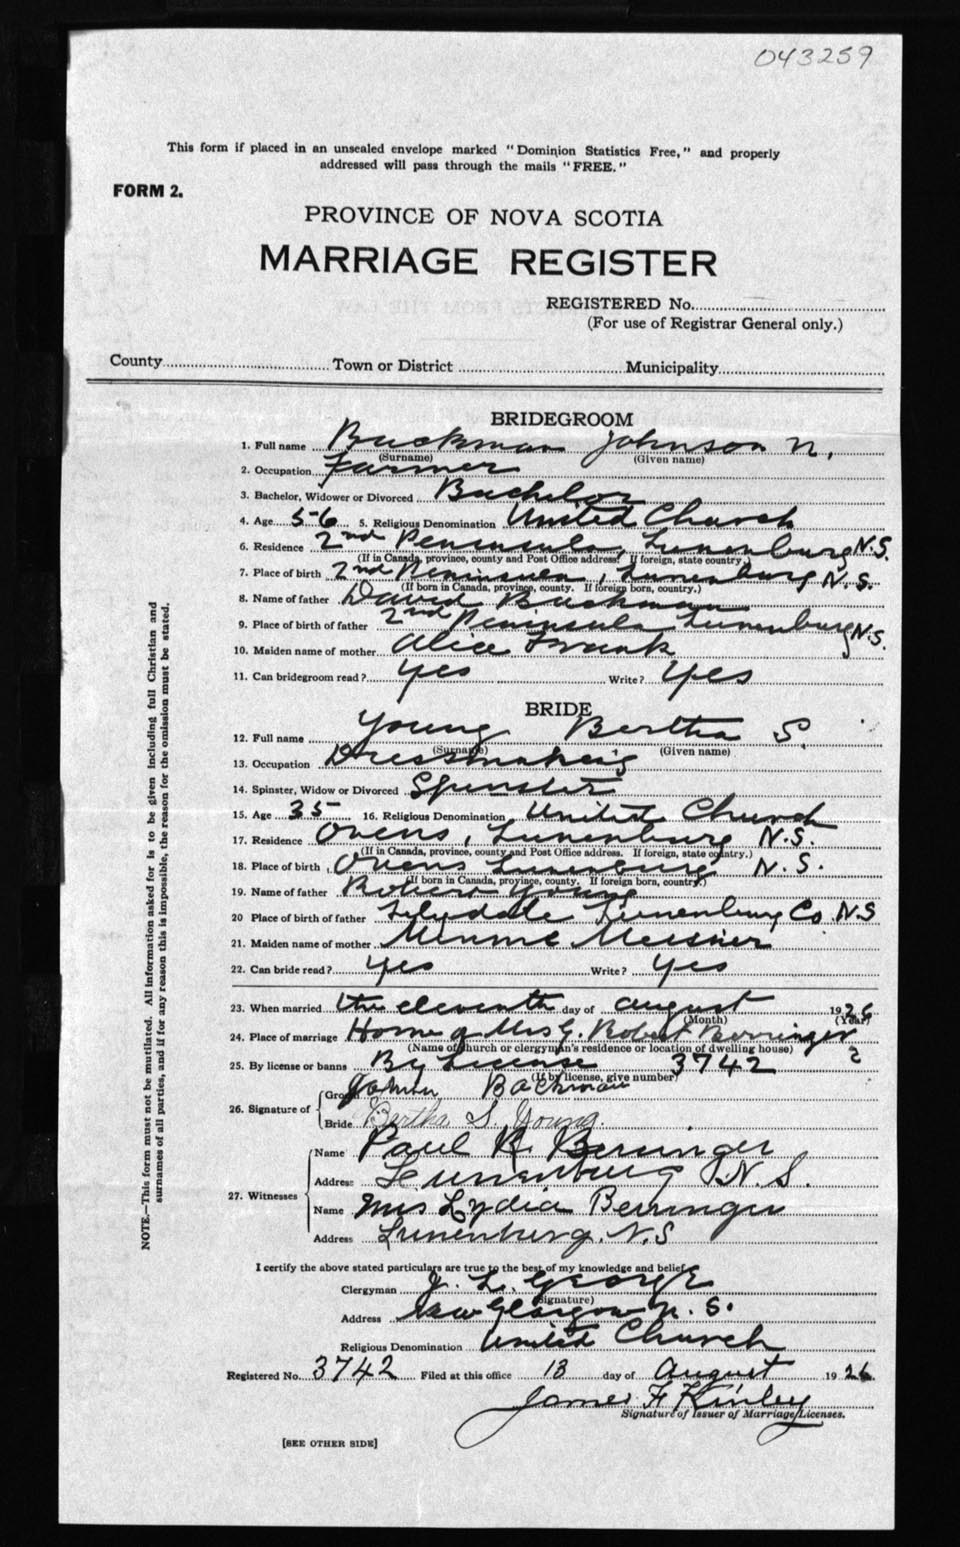 043259
This form if placed in an unsealed envelope marked "Dominion Statistics Free," and properly
addressed will pass through the mails "FREE."
FORM 2.
PROVINCE OF NOVA SCOTIA
MARRIAGE REGISTER
REGISTERED No.
(For use of Registrar General only.)
County Town or District Municipality
BRIDEGROOM
1. Full name Backman Johnson N.
(Surname) (Given name)
2. Occupation Farmer
3. Bachelor, Widower or Divorced Bachelor
4. Age 56 5. Religious Denomination United Church
6. Residence 2nd Peninsula, Lunenburg N.S.
(If in Canada, province, county and Post Office address. If foreign, state country.)
7. Place of birth 2nd Peninsula, Lunenburg N.S.
(If born in Canada, province, county. If foreign born, country.)
8. Name of father David Backman
9. Place of birth of father 2nd Peninsula Lunenburg N.S.
10. Maiden name of mother Alice Frank
11. Can bridegroom read? yes Write? yes
BRIDE
12. Full name Young Bertha S.
(Surname) (Given name)
13. Occupation Dressmaking
14. Spinster, Widow or Divorced Spinster
15. Age 35 16. Religious Denomination United Church
17. Residence Ovens, Lunenburg N.S.
(If in Canada, province, county and Post Office address. If foreign, state country.)
18. Place of birth Ovens Lunenburg N.S.
(If born in Canada, province, county. If foreign born, country.)
19. Name of father Robert Young
20 Place of birth of father Lilydale Lunenburg Co N.S
21. Maiden name of mother Minnie Meisner
22. Can bride read? yes Write? yes
23. When married the eleventh day of august 1926
(Month) (Year)
24. Place of marriage Home of Mrs G. Robert Berringer
(Name of church or clergyman's residence or location of dwelling house)
25. By license or banns By License 3742
(If by license, give number)
26. Signature of
Groom Johnson Backman
Bride Bertha S. Young.
27. Witnesses
Name Paul R. Berringer
Address Lunenburg N.S.
Name Mrs Lydia Berringer
Address Lunenburg, N.S
I certify the above stated particulars are true to the best of my knowledge and belief.
Clergyman J. L. George
(Signature)
Address New Glasgow N.S.
Religious Denomination United Church
Registered No. 3742 Filed at this office 13 day of August 1926
James F Kinley
Signature of Issuer of Marriage Licenses.
[SEE OTHER SIDE]
NOTE.—This form must not be mutilated. All information asked for is to be given including full Christian and
surnames of all parties, and if for any reason this is impossible, the reason for the omission must be stated.